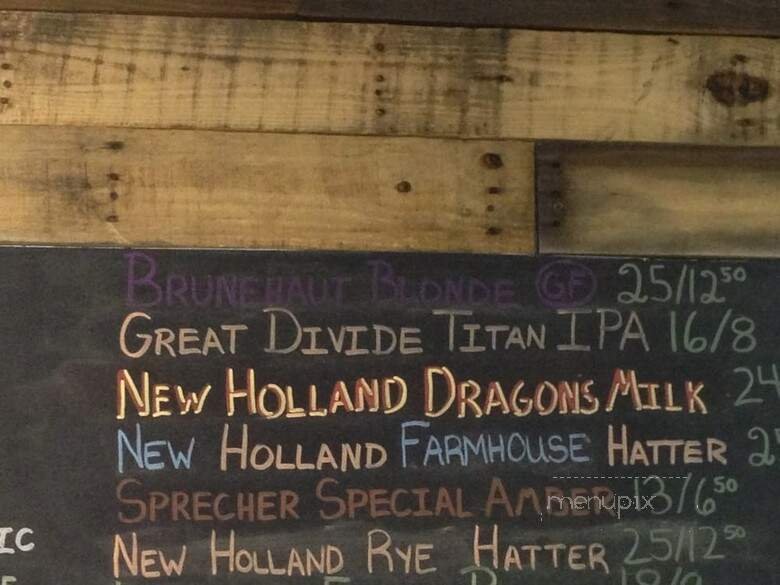 BRUNEHAUT BLONDE GF 25/12⁵⁰
GREAT DIVIDE TITAN IPA 16/8
NEW HOLLAND DRAGONS MILK 24
NEW HOLLAND FARMHOUSE HATTER
SPRECHER SPECIAL AMBER 13/6⁵⁰
menupix
IC
NEW HOLLAND RYE HATTER 25/12⁵⁰